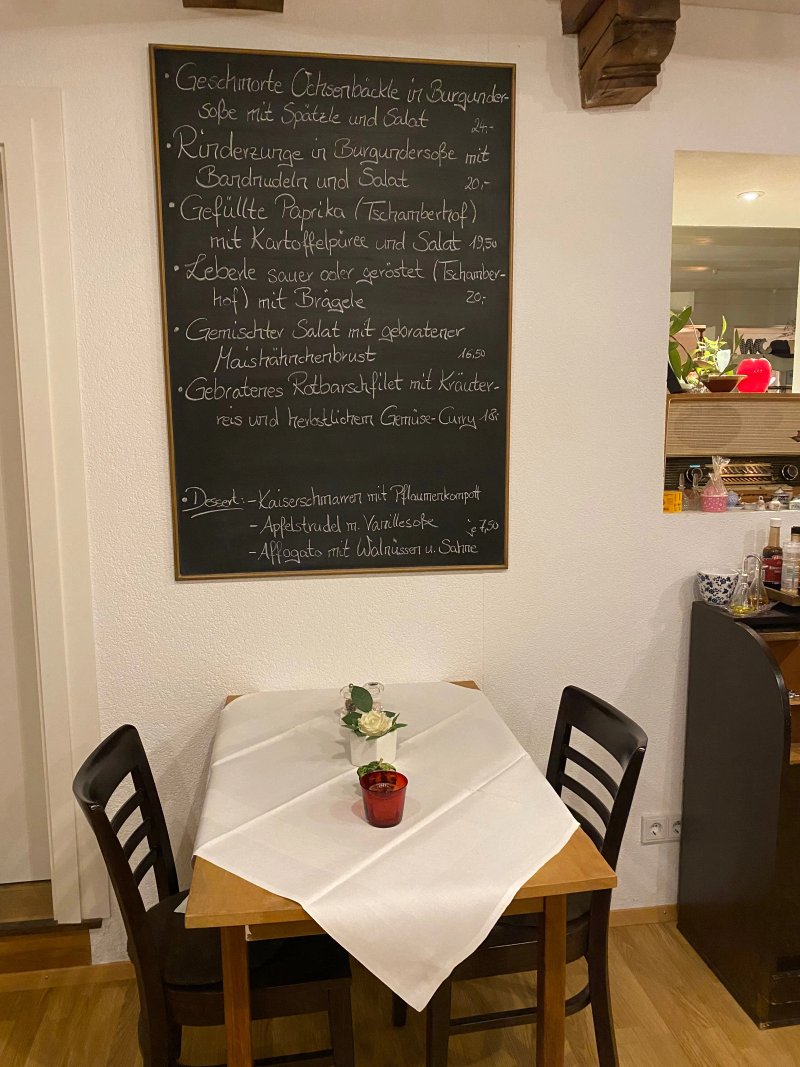 • Geschmorte Ochsenbäckle in Burgunder-
soße mit Spätzle und Salat 24.-
• Rinderzunge in Burgundersoße mit
Bandnudeln und Salat 20,-
• Gefüllte Paprika (Tschamberhof)
mit Kartoffelpüree und Salat 19,50
• Leberle sauer oder geröstet (Tschamber-
hof) mit Brägele 20,-
• Gemischter Salat mit gebratener
Maishähnchenbrust 16,50
• Gebratenes Rotbarschfilet mit Kräuter-
reis und herbstlichem Gemüse-Curry 18.-
• Dessert: - Kaiserschmarren mit Pflaumenkompott
- Apfelstrudel m. Vanillesoße je 7,50
- Affogato mit Walnüssen u. Sahne
WC